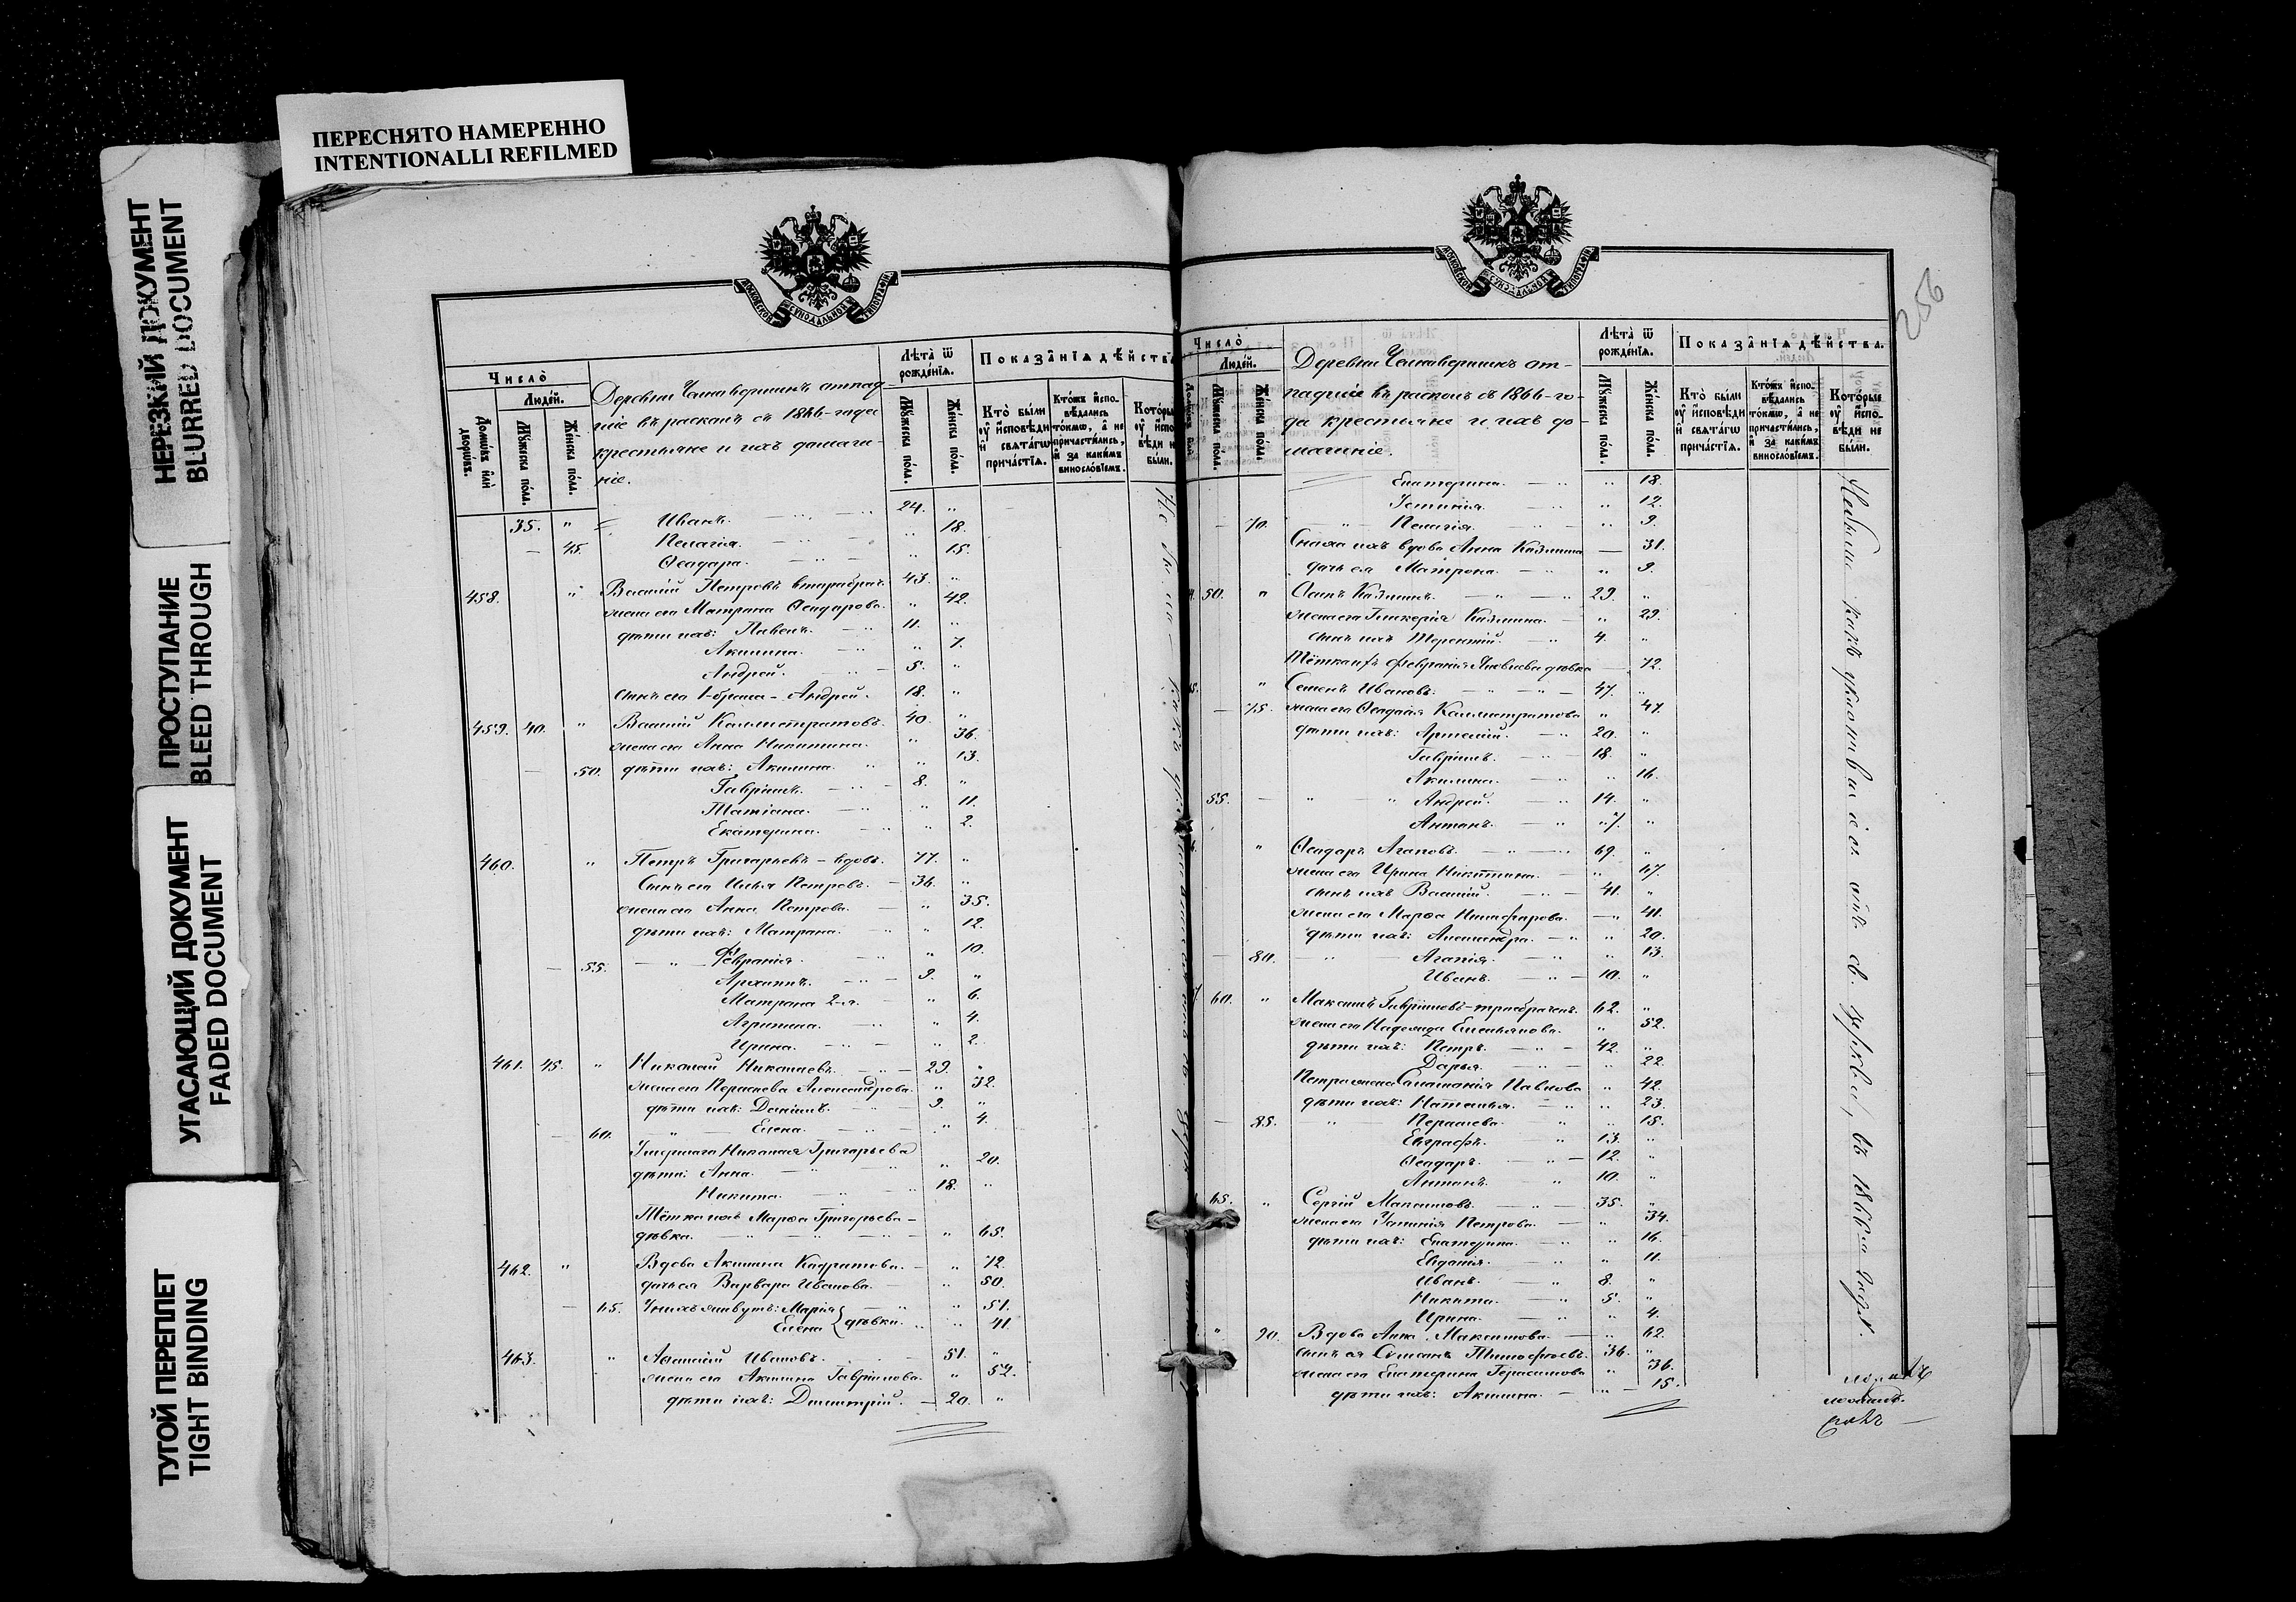 ПЕРЕСНЯТО НАМЕРЕННО
INTENTIONALLI REFILMED
НЕРЕЗКИЙ ДОКУМЕНТ
BLURRED DOCUMENT
ПРОСТУПАНИЕ
BLEED THROUGH
УГАСАЮЩИЙ ДОКУМЕНТ
FADED DOCUMENT
ТУГОЙ ПЕРЕПЛЕТ
TIGHT BINDING
Число̀
Людей.
Домѡвъ или дворѡвъ.
Мꙋжеска полꙋ.
Женска полꙋ.
Деревни отпад-
шіе въ расколъ съ 1866-года
крестьяне и ихъ домаш-
ніе.
Лѣта ѿ рожденїѧ.
Мꙋжеска полꙋ.
Женска полꙋ.
Показанїѧ дѣйства
Кто были оу исповѣди и свѧтагѡ причастїѧ.
Ктожъ исповѣдались токмѡ, а не причастились, и за какимъ винословїемъ.
35. " Иванъ. 24. "
Пелагія. " 18.
45. Ѳеодора. " 15.
458. " Василій Петровъ вторабрач. 43. "
жена его Матрона Ѳеодорова. " 42.
дѣти ихъ: Павелъ. 11. "
Акилина. " 7.
Андрей. 5. "
сынъ его 1-брака - Андрей. 18. "
459. 40. " Василій Каллистратовъ. 40. "
жена его Анна Никитина. " 36.
50. дѣти ихъ: Акилина. " 13.
Гавріилъ. 8. "
Татіана. " 11.
Екатерина. " 2.
460. " Петръ Григорьевъ - вдовъ. 77. "
Сынъ его Илья Петровъ. 36. "
жена его Анна Петрова. " 35.
дѣти ихъ: Матрона. " 12.
55. Февронія. " 10.
Архипъ. 9. "
Матрона 2-я. " 6.
Агрипина. " 4.
Ирина. " 2.
461. 45. " Николай Николаевъ. 29. "
жена его Параскева Александрова. " 32.
дѣти ихъ: Даніилъ. 9. "
60. Елена. " 4.
Умершаго Николая Григорьева
дѣти: Анна. " 20.
Никита. 18. "
Тётка ихъ Марѳа Григорьева -
дѣвка. " 65.
462. " Вдова Акилина Кодратова. " 72.
дочь ея Варвара Иванова. " 50.
65. У нихъ живутъ: Марія " 51.
Елена дѣвки. " 41.
463. " Аѳанасій Ивановъ. 51. "
жена его Акилина Гавріилова. " 52.
дѣти ихъ: Димитрій. 20. "
256
Число̀
Людей.
Мꙋжеска полꙋ.
Женска полꙋ.
Деревни от-
падшіе въ расколъ съ 1866-го-
да крестьяне и ихъ до-
машніе.
Лѣта ѿ рожденїѧ.
Мꙋжеска полꙋ.
Женска полꙋ.
Показанїѧ дѣйства.
Кто были оу исповѣди и свѧтагѡ причастїѧ.
Ктожъ исповѣдались токмѡ, а не причастились, и за какимъ винословїемъ.
Которые оу исповѣди не были.
Екатерина. " 18.
Устинія. " 12.
70. Пелагія. " 9.
Сноха ихъ вдова Анна Козмина 31.
дочь ея Матрона. " 9.
50. " Осипъ Козминъ. 29. "
жена его Гликерія Козмина. " 29.
сынъ ихъ Терентій. 4. "
Тётка ихъ Февронія Яковлева дѣвка 72.
" Семенъ Ивановъ. 47. "
75. жена его Ѳеодосія Каллистратова " 47.
дѣти ихъ: Артемій. 20. "
Гавріилъ. 18. "
Акилина. " 16.
55. Андрей. 14. "
Антонъ. 7. "
" Ѳеодоръ Агаповъ. 69. "
жена его Ирина Никитина. " 67.
сынъ ихъ Василій. 41. "
жена его Марѳа Никифорова. " 41.
дѣти ихъ: Александра. " 20.
80. Агапія. " 13.
Иванъ. 10. "
60. " Максимъ Гавріиловъ - тробраченъ. 62. "
жена его Надежда Емельянова. " 52.
дѣти ихъ: Петръ. 42. "
Дарья. " 22.
Петра жена Соломонія Павлова " 42.
дѣти ихъ: Наталья. " 23.
85. Параскева. " 15.
Евграфъ. 13. "
Ѳеодоръ. 12. "
Антонъ. 10. "
65. " Сергій Максимовъ. 35. "
жена его Петрова. " 34.
дѣти ихъ: Екатерина. " 16.
Евдокія. " 11.
Иванъ. 8. "
Никита. 5. "
Ирина. " 4.
" 90. Вдова Анна Максимова. " 62.
сынъ ея Тимоѳеевъ. 36. "
жена его Екатерина Герасимова " 36.
дѣти ихъ: Акилина. " 15.
Небыли какъ уклонившіеся отъ св. церкви, въ 1866м году.